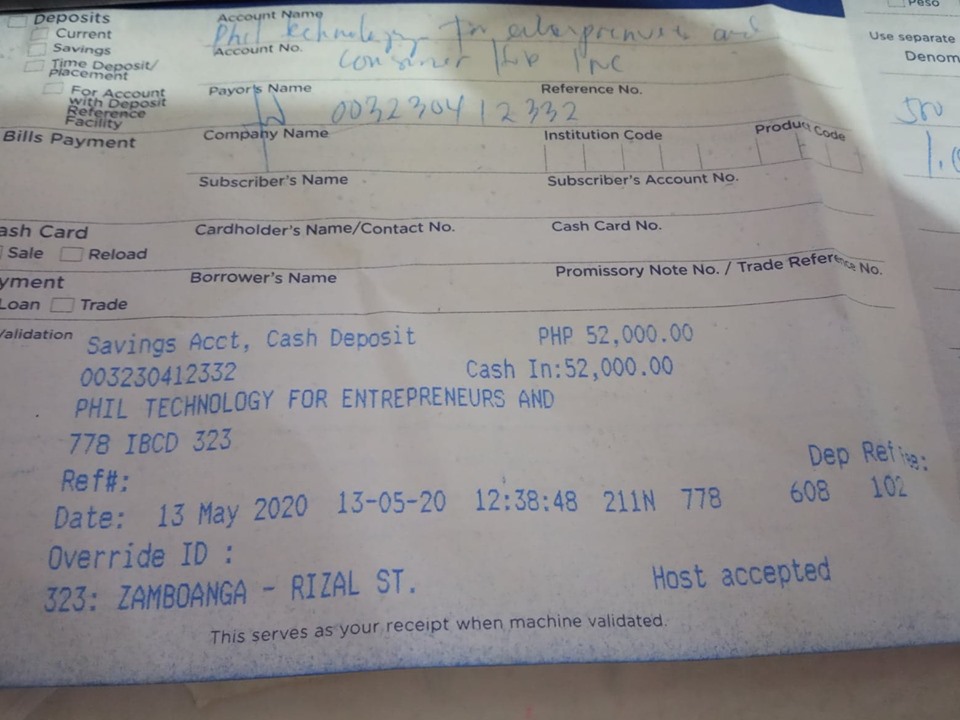 Deposits
Current
Savings
Time Deposit/
Placement
For Account
with Deposit
Reference
Facility
Account Name
Phil technology for enterprenuers and
Account No.
consumer Hub INC
Payor's Name
Reference No.
003230412332
Bills Payment
Company Name
Institution Code
Product Code
Subscriber's Name
Subscriber's Account No.
ash Card
Sale
Reload
Cardholder's Name/Contact No.
Cash Card No.
yment
Loan
Trade
Borrower's Name
Promissory Note No. / Trade Reference No.
Validation
Savings Acct, Cash Deposit PHP 52,000.00
003230412332 Cash In:52,000.00
PHIL TECHNOLOGY FOR ENTREPRENEURS AND
778 IBCD 323
Ref#: Dep Ref
Date: 13 May 2020 13-05-20 12:38:48 211N 778 608 102
Override ID :
323: ZAMBOANGA - RIZAL ST. Host accepted
This serves as your receipt when machine validated.
Peso
Use separate
Denom
500